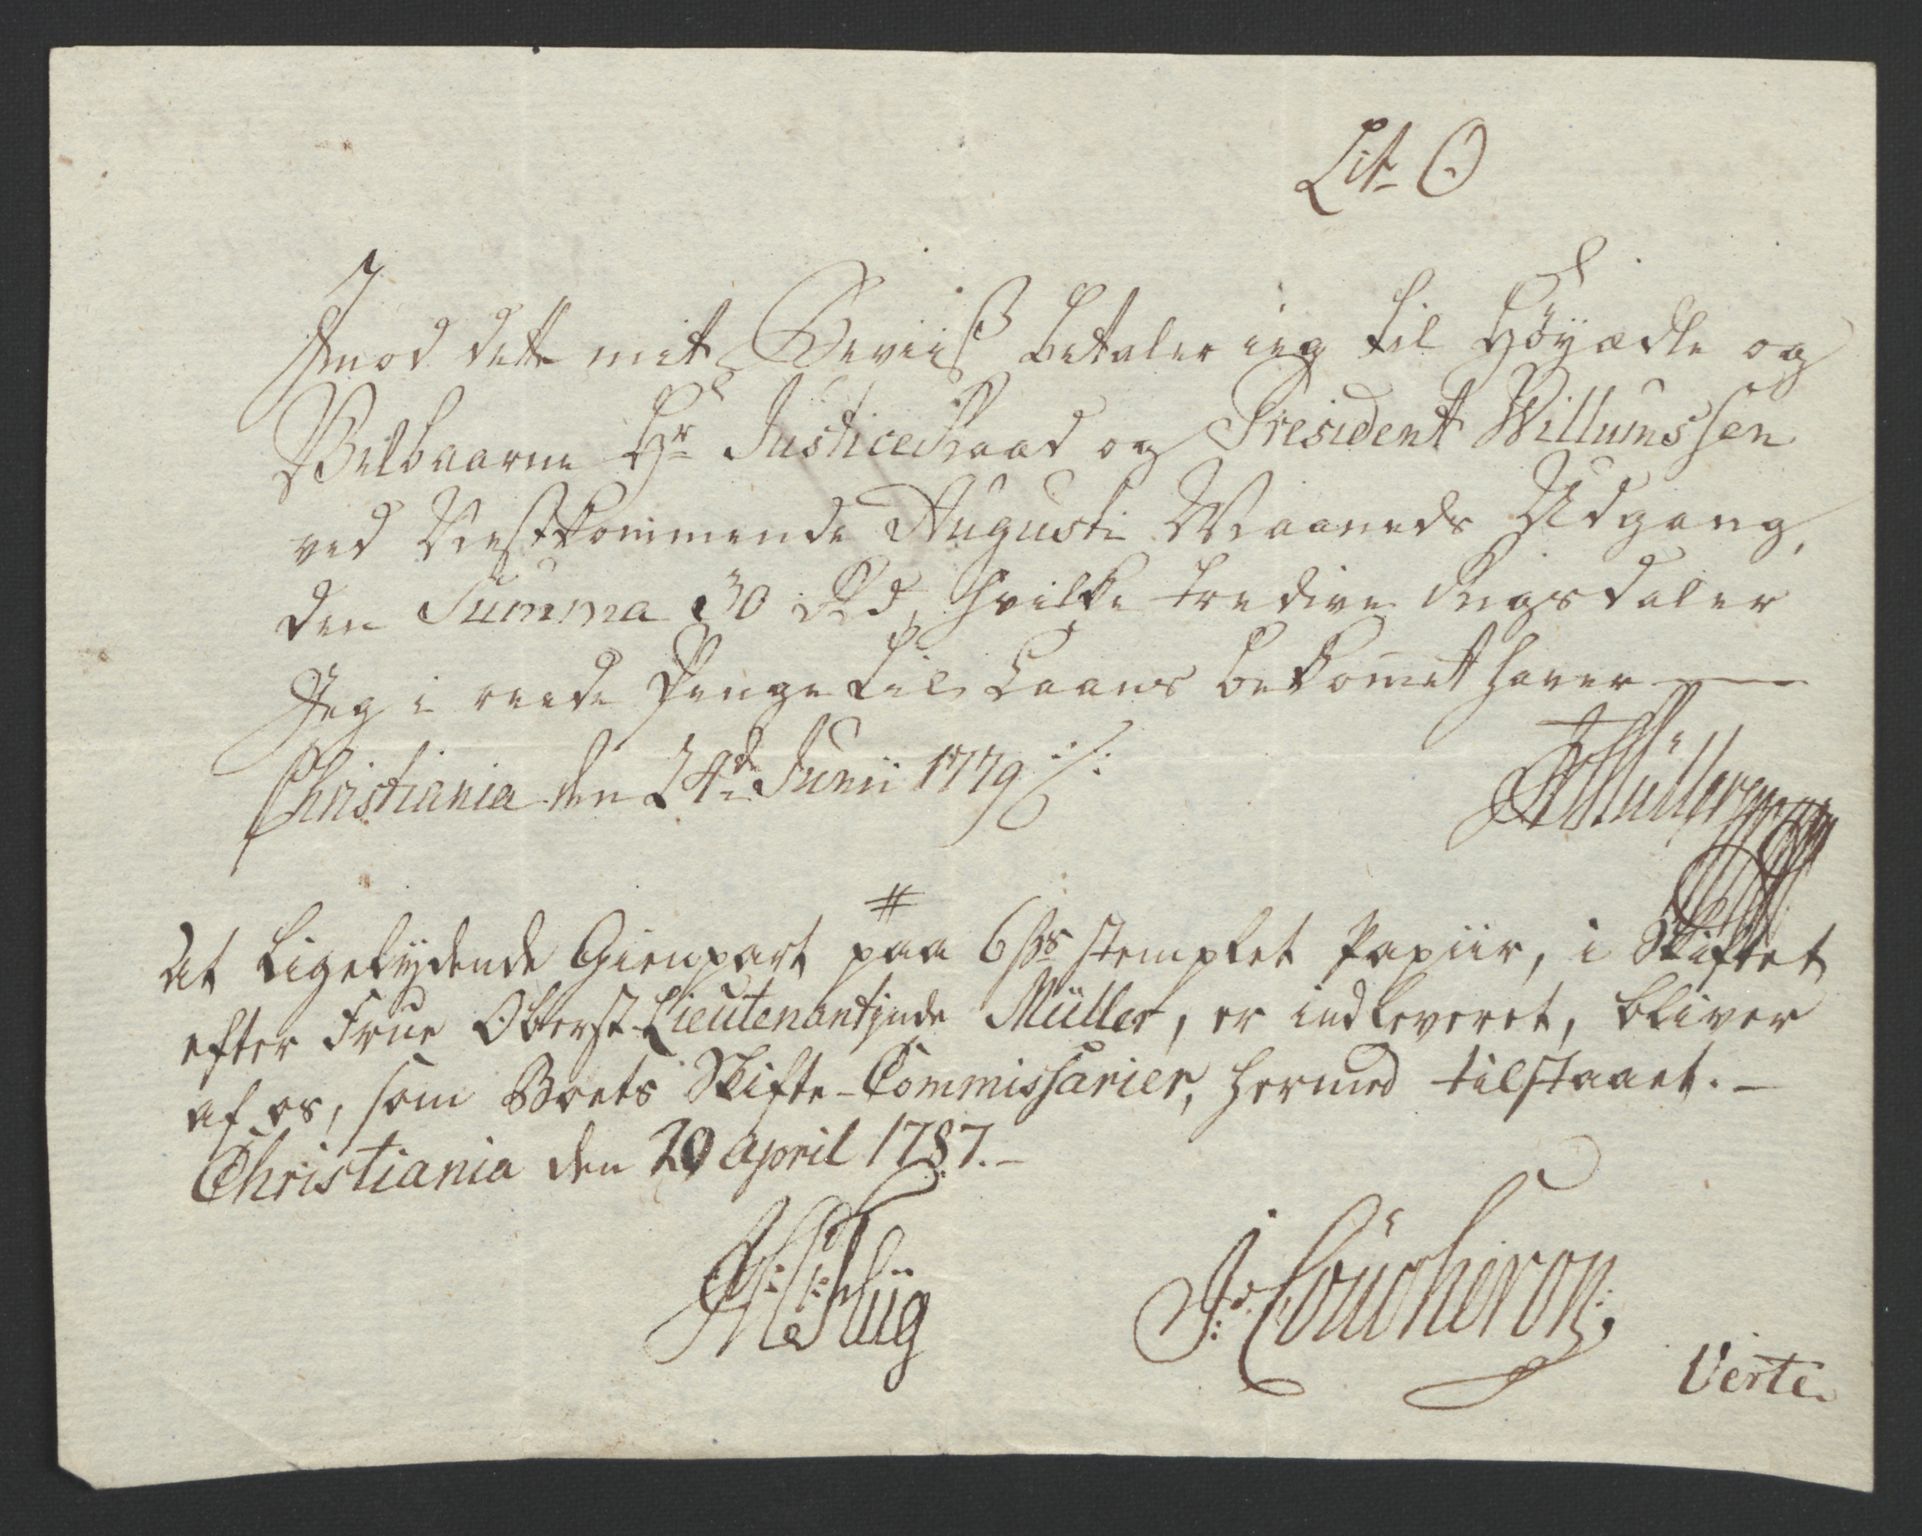 Lit O
Imod dette mit Beviiß betaler ieg til Höyædle og
Velbaarne Hr JusticeRaad og President Willumssen
ved Nestkommende Augusti Maaneds Udgang,
den Summa 30 Rd, hvilke tredive Rigsdaler
Jeg i reede Penge til Laans bekommet haver
Christiania den 24de Junii 1779 ./.
Müller
#
At Ligelydende Gienpart paa 6 s. stemplet Papiir, i Skiftet
efter Frue Oberst-Lieutenantjnde Müller, er indleveret, bliver
af os, som Boets Skifte-Commissarier, hermed tilstaaet. -
Christiania den 20 April 1787. -
J: Coucheron
Verte.